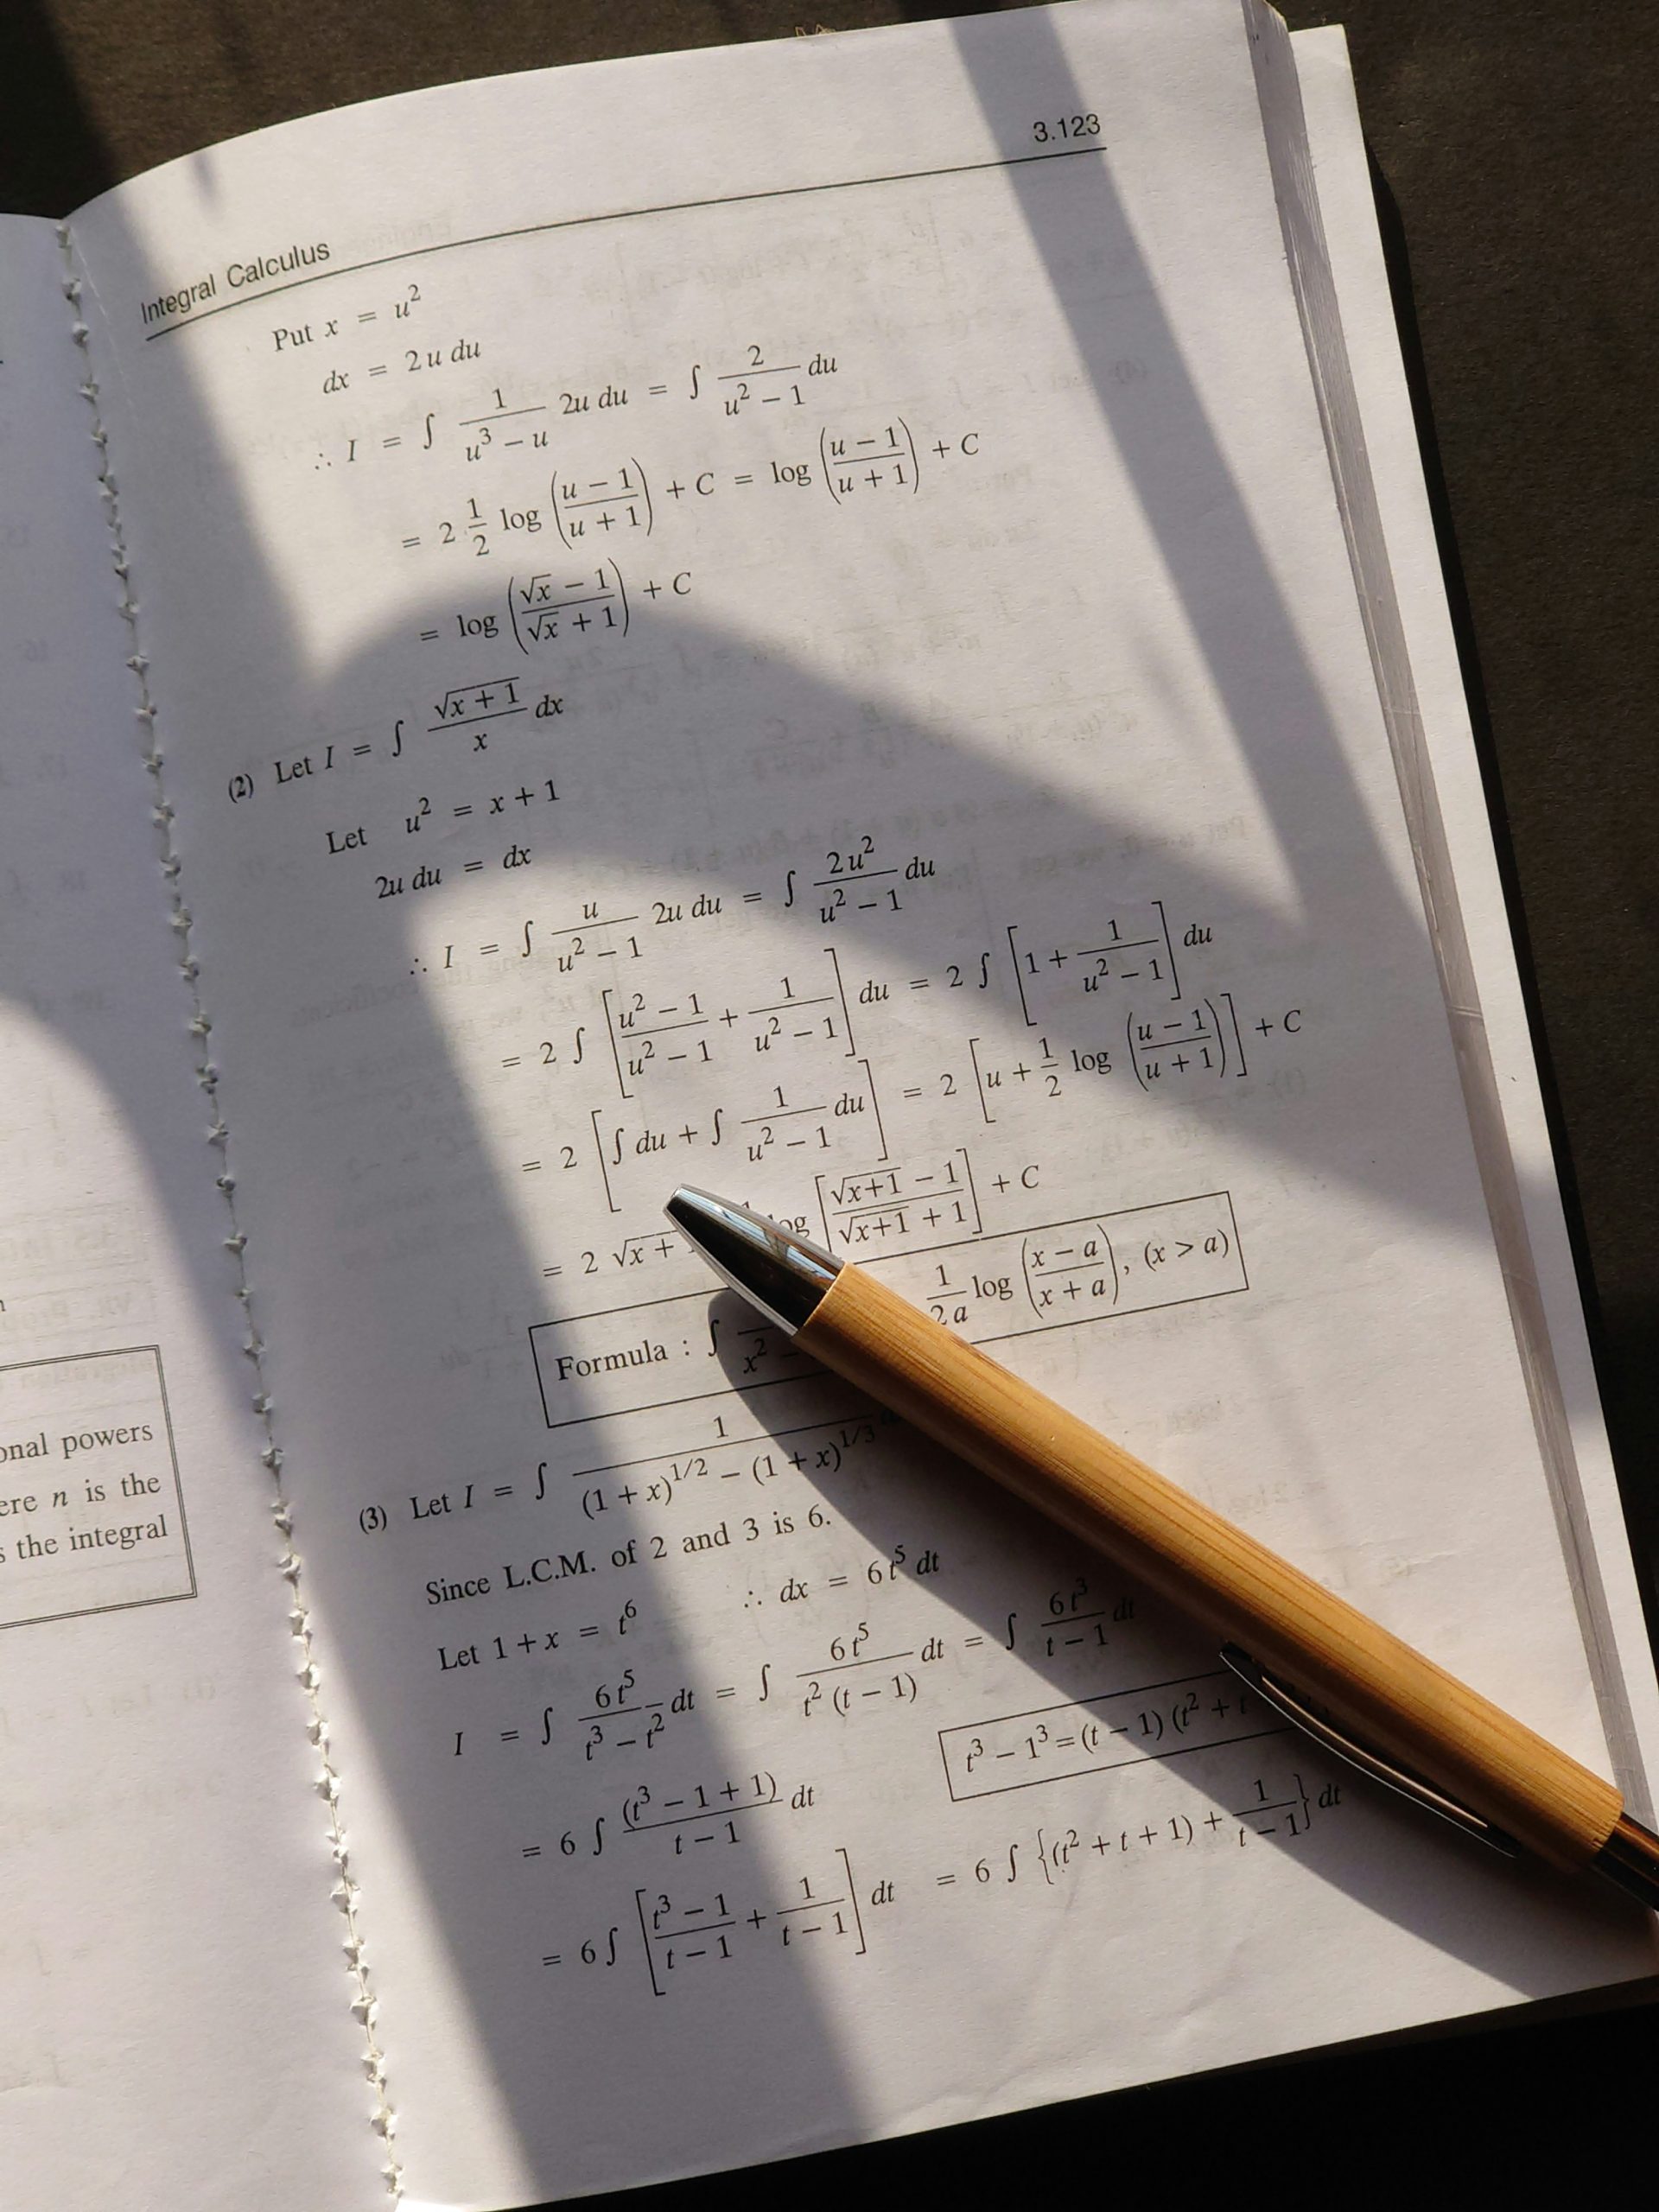 3.123
Integral Calculus
Put x = u²
dx = 2 u du
∴ I = ∫ 1/(u³ − u) 2u du = ∫ 2/(u² − 1) du
= 2 · 1/2 log ((u − 1)/(u + 1)) + C = log ((u − 1)/(u + 1)) + C
= log ((√x − 1)/(√x + 1)) + C
(2) Let I = ∫ √(x + 1)/x dx
Let u² = x + 1
2u du = dx
∴ I = ∫ u/(u² − 1) 2u du = ∫ 2u²/(u² − 1) du
= 2 ∫ [(u² − 1)/(u² − 1) + 1/(u² − 1)] du = 2 ∫ [1 + 1/(u² − 1)] du
= 2 [∫ du + ∫ 1/(u² − 1) du] = 2 [u + 1/2 log ((u − 1)/(u + 1))] + C
= 2 √x + log [(√(x+1) − 1)/(√(x+1) + 1)] + C
Formula : ∫ x² − 1/(2 a) log ((x − a)/(x + a)), (x > a)
(3) Let I = ∫ 1/((1 + x)^1/2 − (1 + x)^1/3)
Since L.C.M. of 2 and 3 is 6.
Let 1 + x = t⁶ ∴ dx = 6 t⁵ dt
I = ∫ 6 t⁵/(t³ − t²) dt = ∫ 6 t⁵/(t² (t − 1)) dt = ∫ 6 t³/(t − 1) dt
t³ − 1³ = (t − 1) (t² + t
= 6 ∫ (t³ − 1 + 1)/(t − 1) dt
= 6 ∫ [(t³ − 1)/(t − 1) + 1/(t − 1)] dt = 6 ∫ {(t² + t + 1) + 1/(t − 1)} dt
onal powers
ere n is the
s the integral